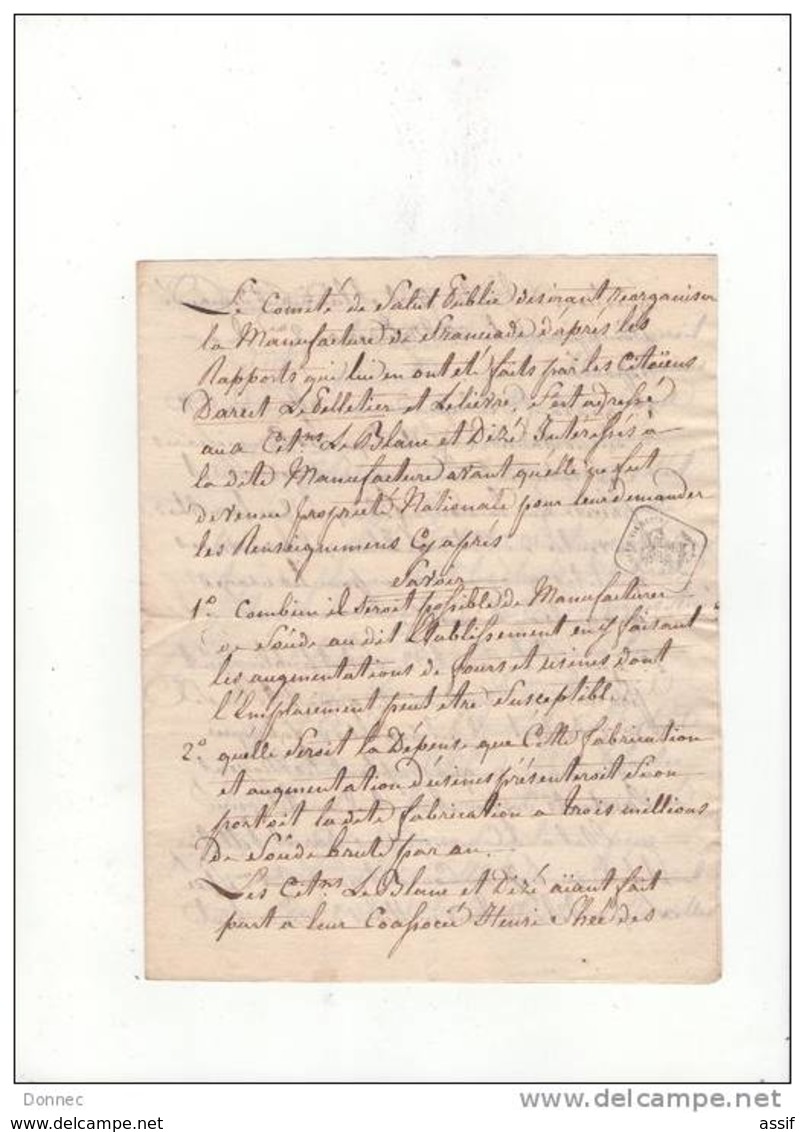 Le Comité de Salut Public desirant reorganiser
la Manufacture de Franciade d'aprés les
Rapports qui lui en ont eté faits par les Citoïens
Darcet LePelletier et Lelievre, s'est adressé
aux Cit.ns Le Blanc et Dizé Interessés à
la dite Manufacture avant qu'elle ne fut
devenue proprieté Nationale pour leur demander
les Renseignemens Cy aprés
Savoir
1.º Combien il seroit possible de Manufacturer
de Soúde au dit Etablissement en y faisant
les augmentations de fours et usines dont
l'Emplacement peut etre Susceptible.
2.º quelle Seroit la Dépense que Cette fabrication
et augmentation d'usines présenteroit Si on
portoit la dite fabrication a trois millions
de Soúde brute par an.
Les Cit.ns Le Blanc et Dizé aïant fait
part a leur Coassocié Henri Shée des
Donnec
delcampe.net
assif